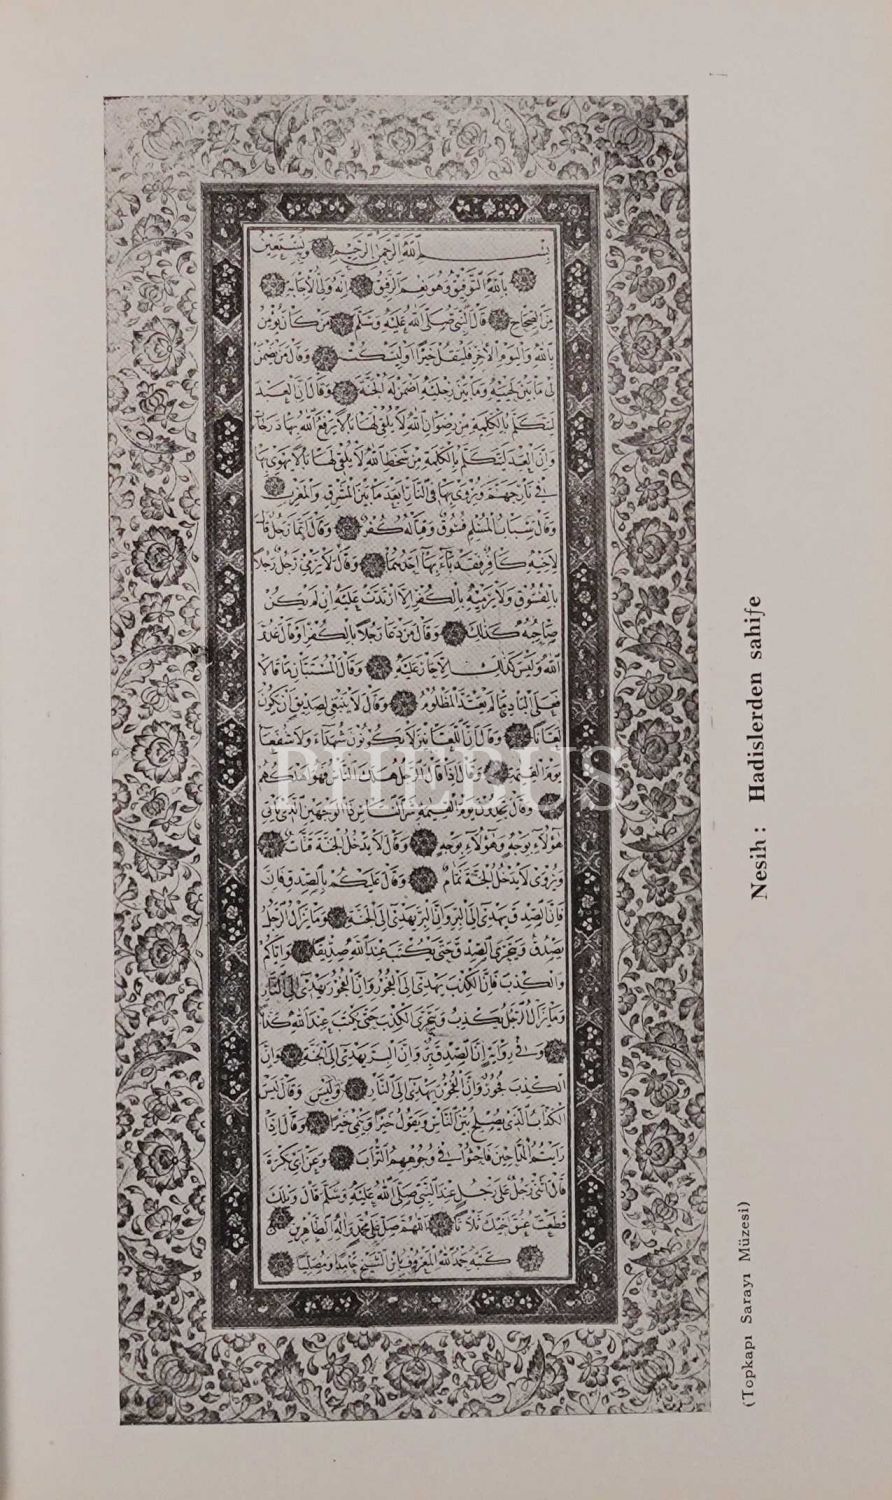 بسم الله الرحمن الرحيم وبه نستعين
بالله التوفيق وهو نعم الرفيق انه ولى الاجابة
من الصحاح قال النبى صلى الله عليه وسلم من كان يؤمن
بالله واليوم الاخر فليقل خيرا او ليسكت وقال من يضمن
لى ما بين لحييه وما بين رجليه اضمن له الجنة وقال ان العبد
ليتكلم بالكلمة من رضوان الله لا يلقى لها بالا يرفع الله بها درجات
وان العبد ليتكلم بالكلمة من سخط الله لا يلقى لها بالا يهوى بها
فى نار جهنم ويروى يهوى بها فى النار ابعد ما بين المشرق والمغرب
وقال سباب المسلم فسوق وقتاله كفر وقال ايما رجل قال
لاخيه كافر فقد باء بها احدهما وقال لا يرمى رجل رجلا
بالفسوق ولا يرميه بالكفر الا ارتدت عليه ان لم يكن
صاحبه كذلك وقال من دعا رجلا بالكفر او قال عدو
الله وليس كذلك الا حار عليه وقال المستبان ما قالا
فعلى البادى ما لم يعتد المظلوم وقال لا ينبغى لصديق ان يكون
لعانا وقال ان اللعانين لا يكونون شهداء ولا شفعاء
يوم القيمة وقال اذا قال الرجل هلك الناس فهو اهلكهم
وقال تجدون يوم القيمة شر الناس ذا الوجهين الذى ياتى
هؤلاء بوجه وهؤلاء بوجه وقال لا يدخل الجنة قتات
ويروى لا يدخل الجنة نمام وقال عليكم بالصدق فان
فان الصدق يهدى الى البر وان البر يهدى الى الجنة وما يزال الرجل
يصدق ويتحرى الصدق حتى يكتب عند الله صديقا واياكم
والكذب فان الكذب يهدى الى الفجور وان الفجور يهدى الى النار
وما يزال الرجل يكذب ويتحرى الكذب حتى يكتب عند الله كذابا
وفى رواية ان الصدق بر وان البر يهدى الى الجنة وان
الكذب فجور وان الفجور يهدى الى النار وقال ليس
الكذاب الذى يصلح بين الناس ويقول خيرا وينمى خيرا وقال اذا
رايتم المداحين فاحثوا فى وجوههم التراب وعن ابى بكرة
قال اثنى رجل على رجل عند النبى صلى الله عليه وسلم قال ويلك
قطعت عنق اخيك ثلاثا اللهم صل على محمد واله الطاهرين
كتبه حمد الله المعروف بابن الشيخ حامدا ومصليا
PHEBUS
Nesih : Hadislerden sahife
(Topkapı Sarayı Müzesi)